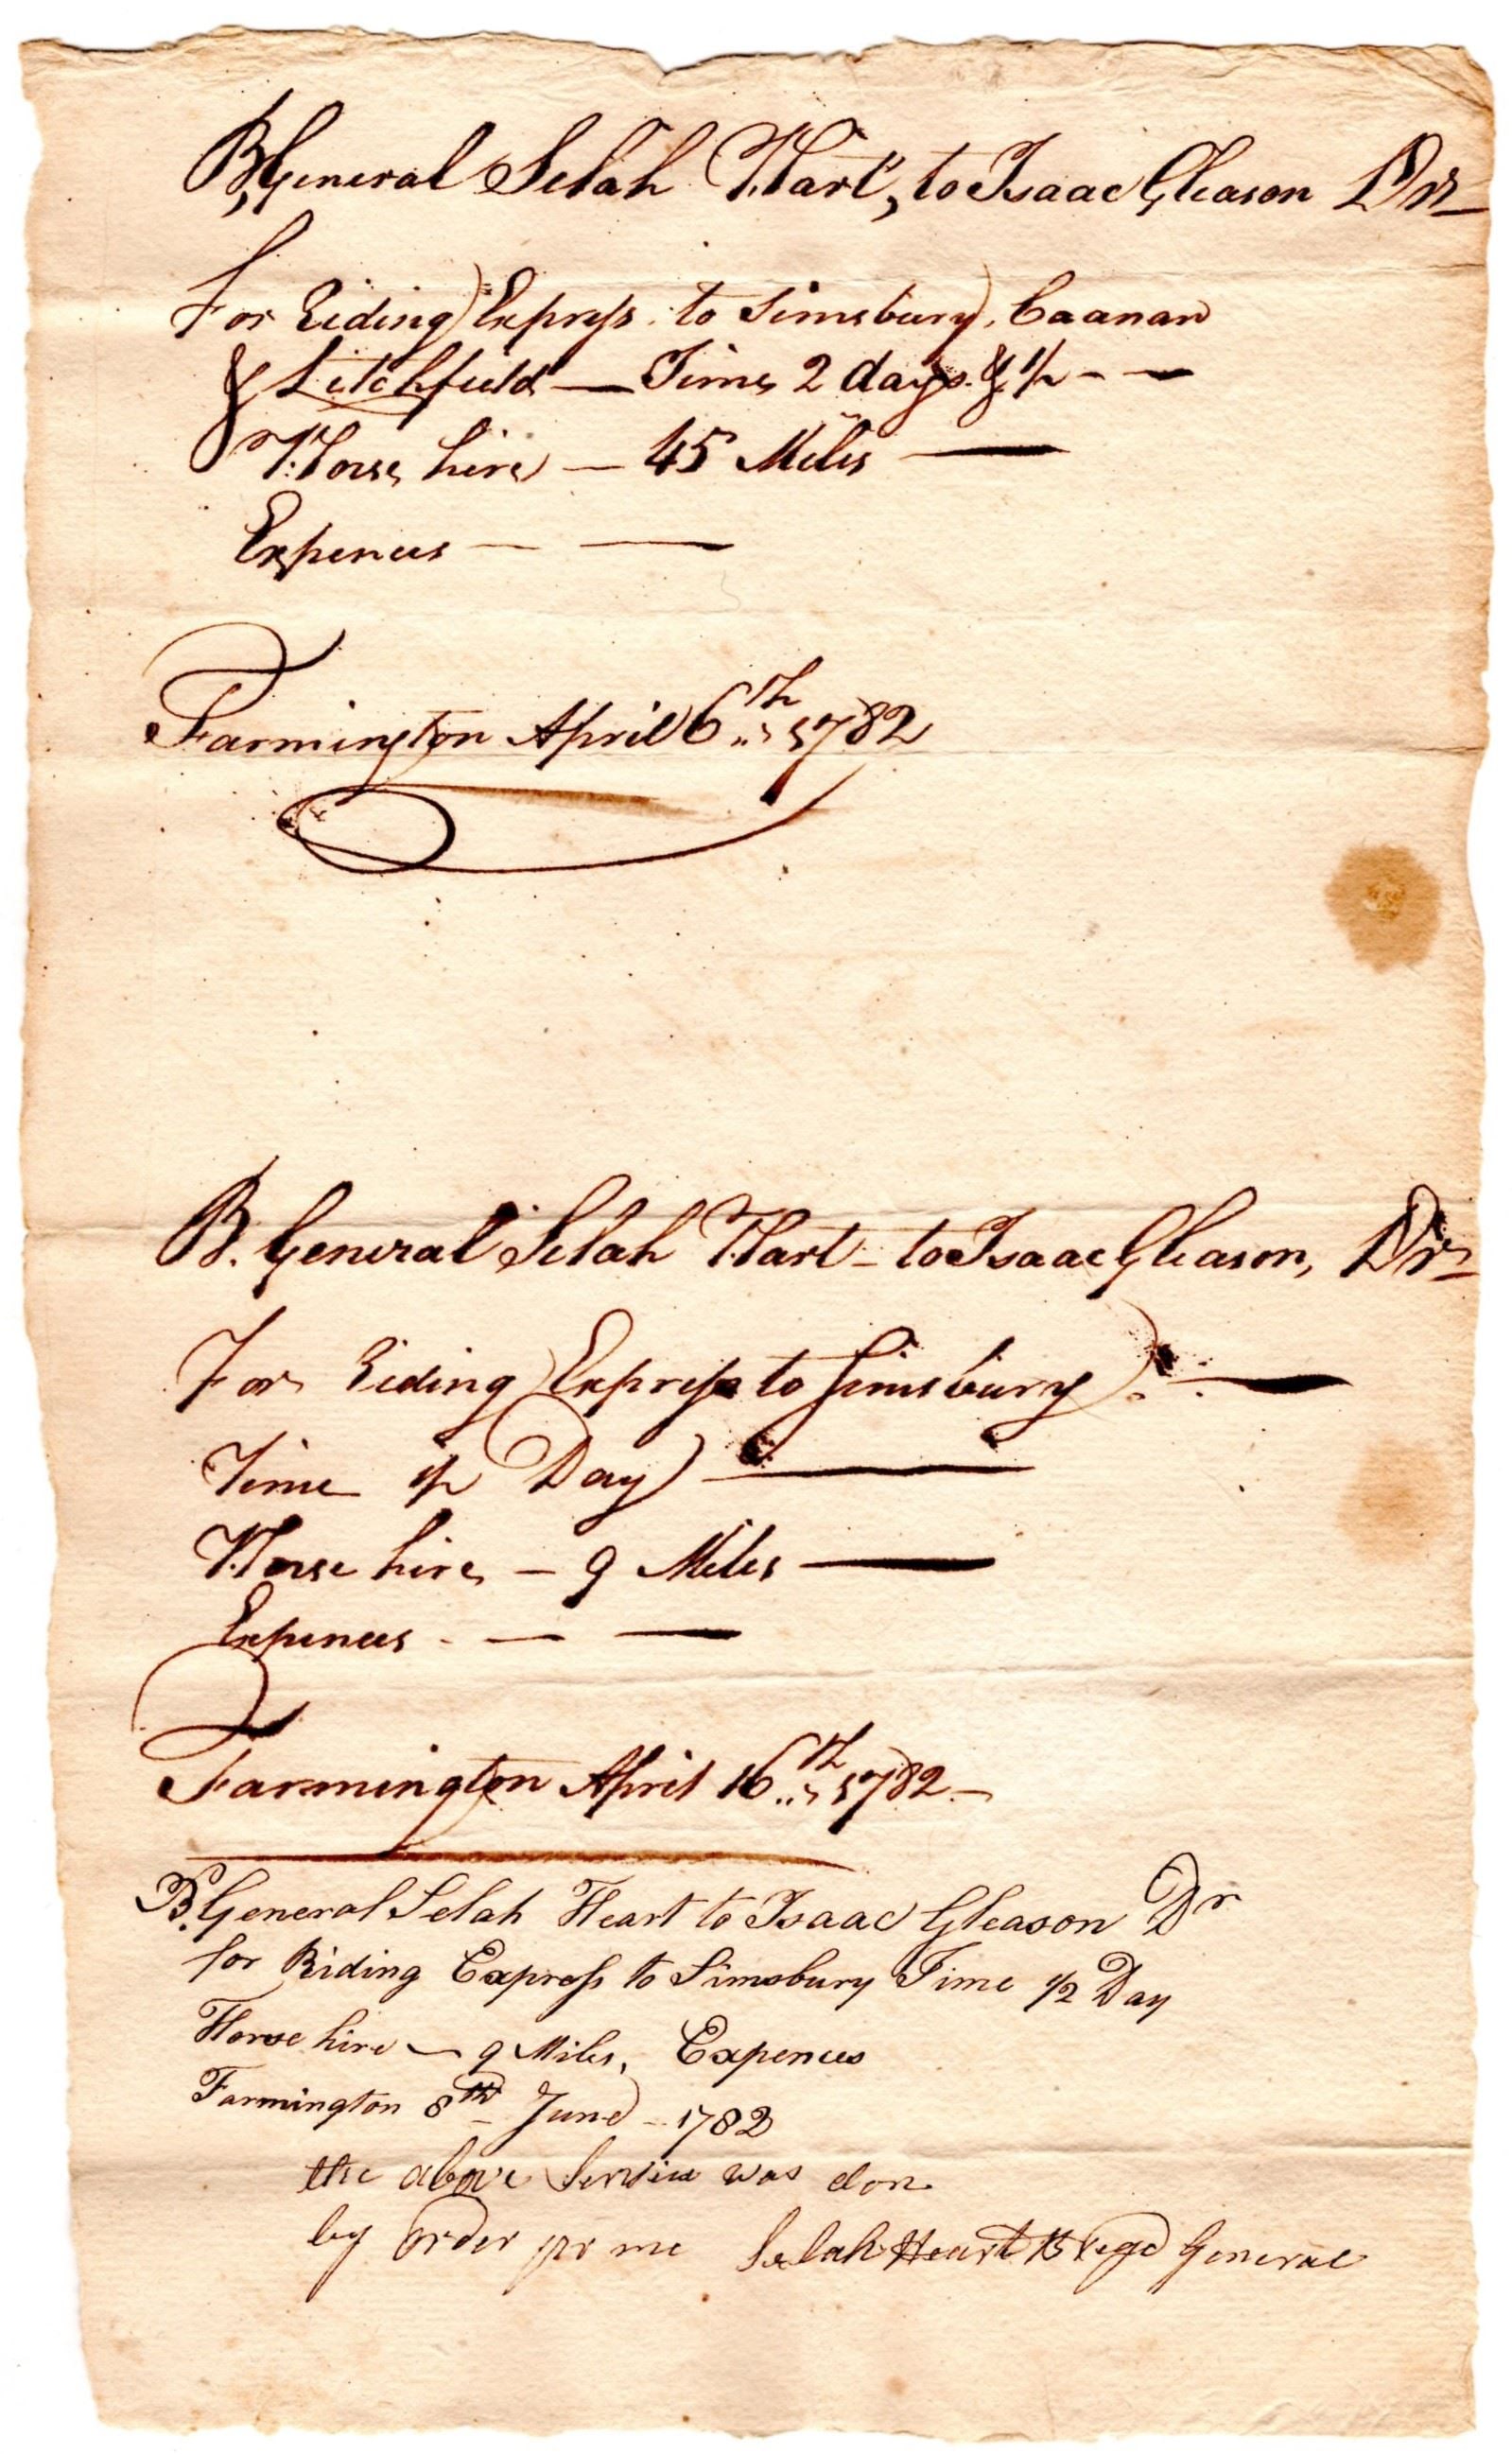 B, General Selah Hart, to Isaac Gleason Dr
For Riding Express to Simsbury, Caanan
& Litchfield — Time, 2 days & 1/2 - —
Horse hire — 45 Miles —
Expences — —
Farmington April 6th, 1782
B. General Selah Hart - to Isaac Gleason, Dr
For Riding Express to Simsbury. —
Time 1/2 Day —
Horse hire, — 9 Miles —
Expences - — —
Farmington April 16th, 1782 —
B. General Selah Heart to Isaac Gleason Dr
for Riding Express to Simsbury Time 1/2 Day
Horse hire — 9 Miles, Expences
Farmington 8th June - 1782
the above Service was don
by order pr me Selah Heart Brigd General